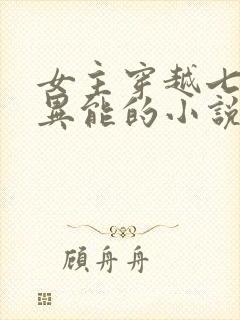 女主穿越七
異能的小說
顧舟舟